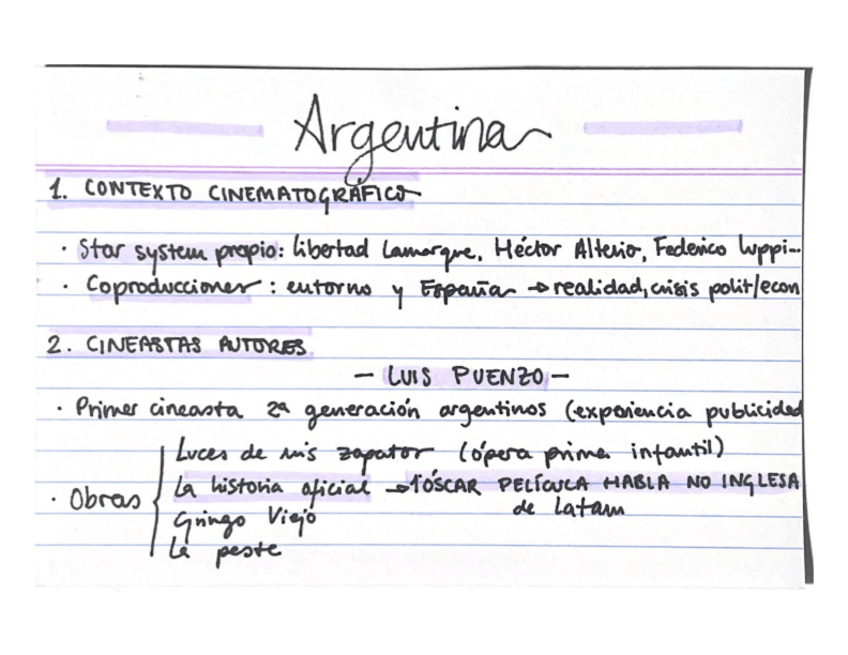 Argentina
1. CONTEXTO CINEMATOGRÁFICO
· Star system propio: libertad Lamarque, Héctor Alterio, Federico luppi...
· Coproducciones: entorno y España → realidad, crisis polit/econ
2. CINEASTAS AUTORES
— LUIS PUENZO —
· Primer cineasta 2ª generación argentinos (experiencia publicidad
Luces de mis zapatos (ópera prima infantil)
· Obras { La historia oficial → 1 ÓSCAR PELÍCULA HABLA NO INGLESA
de Latam
Gringo Viejo
La peste